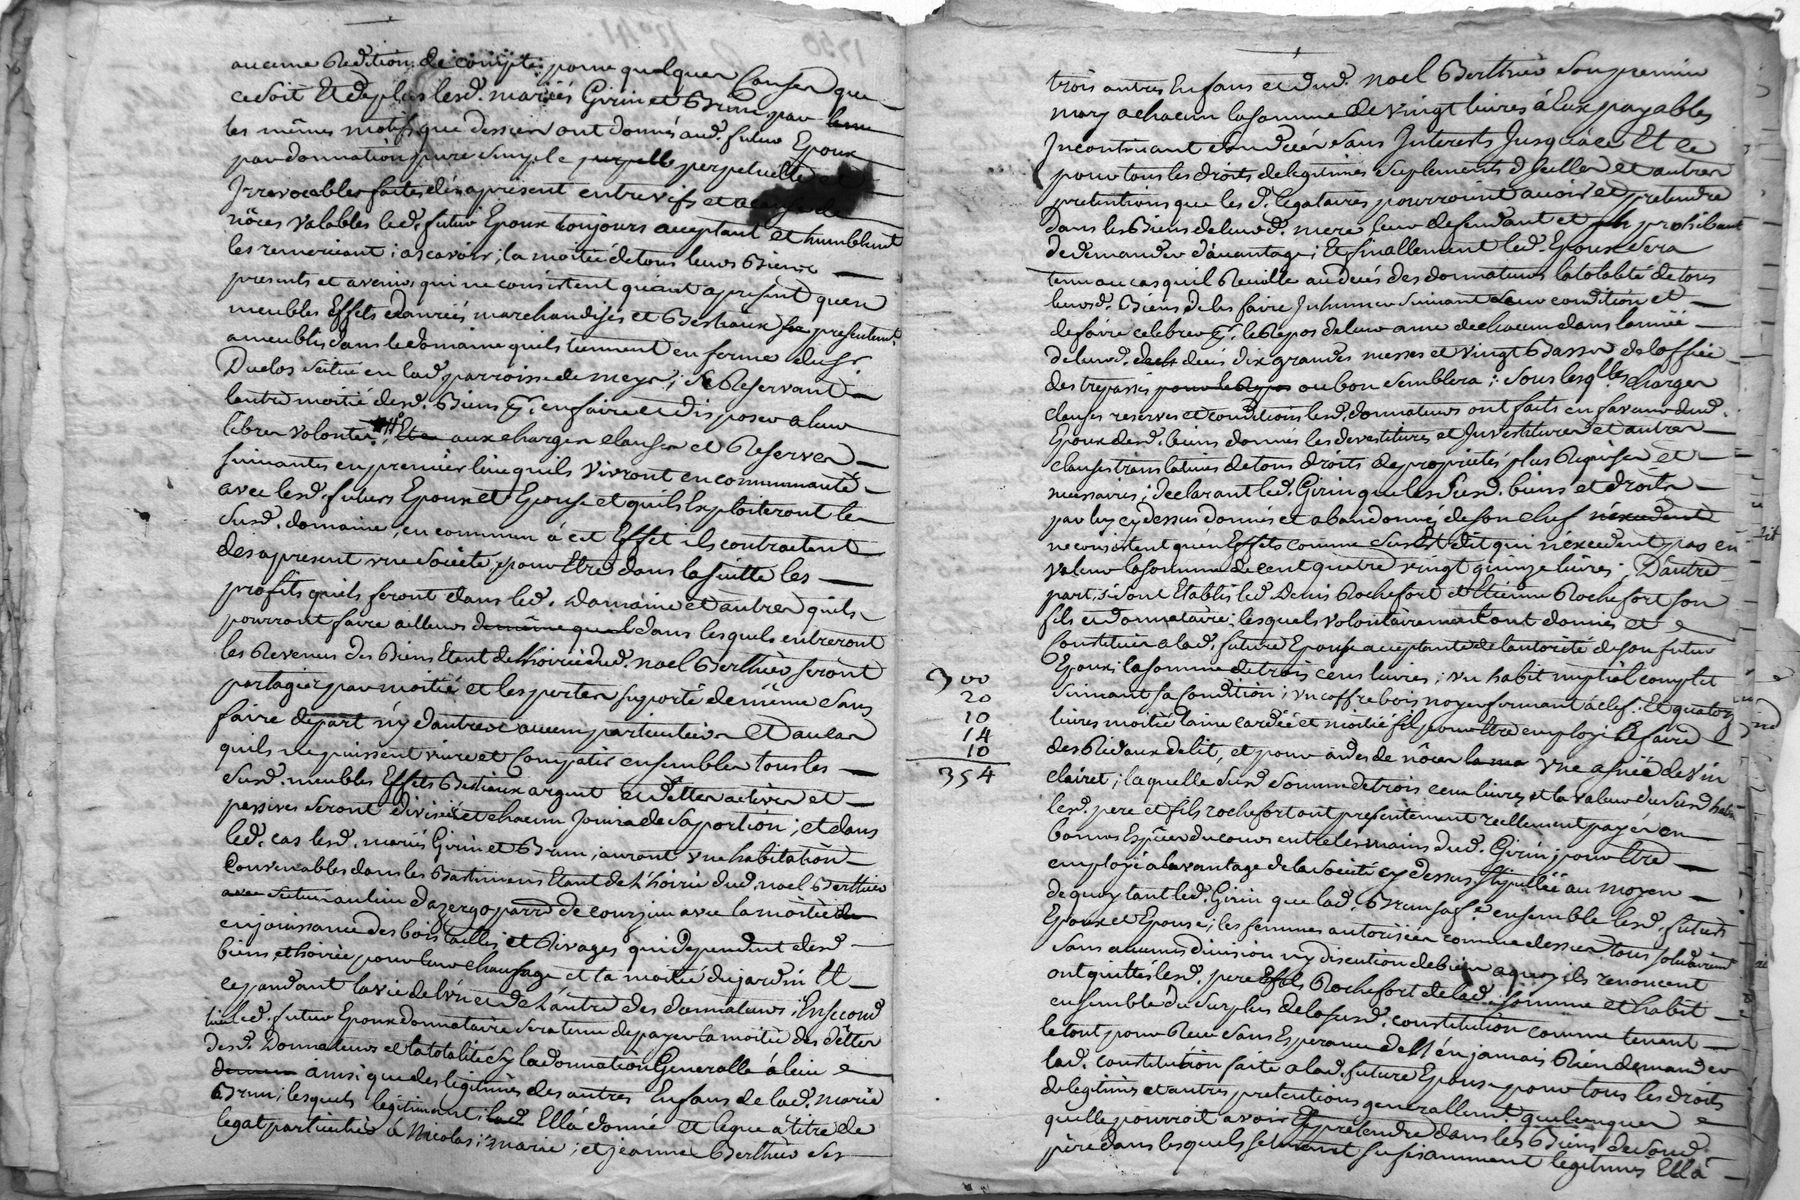 aucune Redition de compte pour quelques Causes que
ce soit Et de plus lesd. mariés Girin et Brun, par
les mêmes motifs que dessus ont donnés aud. futur Epoux
par donnation pure simple perpetuelle et
Irrevocable faite dès apresent entrevifs et a cause de
nôces valables led. futur Epoux toujours acceptant et humblemt
les remerciant; ascavoir; la moitié de tous leurs Biens
presents et avenir, qui ne consistent quant apresent quen
meubles Effets danrées marchandises et Bestiaux presentemt
ameublés dans le domaine quils tiennent en ferme du Sr.
Duclos scitué en lad. parroisse de meys; Se Reservant
lautre moitié desd. Biens pr. en faire et disposer a leur
libres volontés, aux charges clauses et Reserves
suivantes en premier lieu quils vivront en communauté
avec lesd. futurs Epoux et Epouse et quils Exploiteront le
susd. domaine, en commun à cet Effet ils contractent
des apresent une société, pour Etre dans la suitte les
profits quils feront dans led. Domaine et autres quils
pourront faire ailleurs dans lesquels entreront
les Revenus des Biens Etant de lhoirie dud. noel Berthier seront
partagés par moitié et les pertes suporté de même sans
faire depart n'y d'autres aucun particulier Et au cas
quils ne puissent vivre et Compatir ensembles tous les
susd. meubles Effets Bestiaux argent et dettes actives et
passives seront divisés et chacun Jouira de sa portion; et dans
led. cas lesd. mariés Girin et Brun, auront une habitation
Convenables dans les Bastiments Etant de L'hoirie dud. noel Berthier
au lieu d'azergo parr de courzieu avec la moitié
en joüissance des bois taillis et Rivages qui dependent desd.
biens et hoirie, pour leur chaufage et la moitié du jardin Et
ce pandant la vie de lun et de Lautre des donnateurs; En second
lieu led. futur Epoux donnataire sera tenu de payer la moitié des dettes
desd. Donnateurs et la totalité sy la donnation Generalle à lieu
ainsi que des legitimes des autres Enfans de lad. marie
Brun; lesquels legitimant; Ellà donné et legue à titre de
legat particulier à Nicolas; marie; et jeanne Berthier ses
trois autres Enfans et dud. noel Berthier son premier
mary a chacun la somme de vingt livres à Eux payables
Incontinant son décès sans Interests Jusqu'àce Et ce
pour tous les droits de legitimes suplements d'Icelles et autres
pretentions que lesd. legataires pourroient avoir et pretendre
Dans les Biens de leurd. mere leur defendant et prohibant
de demander d'avantage; Et finallement led. Epoux sera
tenu au cas quil Recuille au deces des donnateurs la totalité de tous
leursd. Biens de les faire Inhumer suivant Leur condition et
de faire celebrer pr. le Repos de leur ame de chacun dans lannée
de leurd. deces dix grandes messes et vingt Basses de loffice
des trepassés ou bon semblera: Sous lesqlles charges
clauses reserves et conditions lesd. donnateurs ont faits en faveur dud.
Epoux desd. biens donnés les devestitures et Investitures et autres
clauses translatives de tous droits de proprietés plus Requises et
necessaires; declarant led. Girin que les susd. biens et droits
par luy cy dessus donnés et abandonnés de son chef
ne consistent qu'en Effets comme susEst dit qui nexcedent pas en
valeur la somme de cent quatre vingt quinze livres. D'autre
part, se sont Etablis led. Denis Rochefort et Etienne Rochefort son
fils et donnataire; lesquels volontairement ont donnés et
Constitués a lad. future Epouse acceptante de lautorité de son futur
Epoux; la somme de trois cens livres; un habit nuptial complet
suivant sa condition; un coffre bois noyer fermant à clef. Et quatorze
livres moitié laine cardée et moitié fil pour Etre employé à faire
des Rideaux de lit, et pour aides de nôces une anée de vin
clairet; laquelle susd somme de trois cens livres et la valeur du susd habit
lesd. pere et fils rochefort ont presentement reellement payés en
bonnes Espèces du cours entre les mains dud. Girin; pour Etre
employé a lavantage de la société cy dessus stipullée au moyen
de quoy tant led. Girin que lad. Brun sa fe ensemble lesd. futurs
Epoux et Epouse; les femmes autorisées comme dessus tous solidairemt
sans aucunes division ny discution de biens a quoy ils renoncent
ont quittés lesd. pere Et fils Rochefort de lad. somme et habit
ensemble du surplus de la susd. constitution comme tenant
le tout pour Receu sans Esperance de L'en jamais Rien demander
lad. constitution faite a lad. future Epouse pour tous les droits
de legitimes et autres pretentions generallement quelconques
quelle pourroit avoir Et pretendre dans les Biens de sond.
père dans lesquels se tenant suffisamment legitimée Ellà
300
20
10
14
10
354